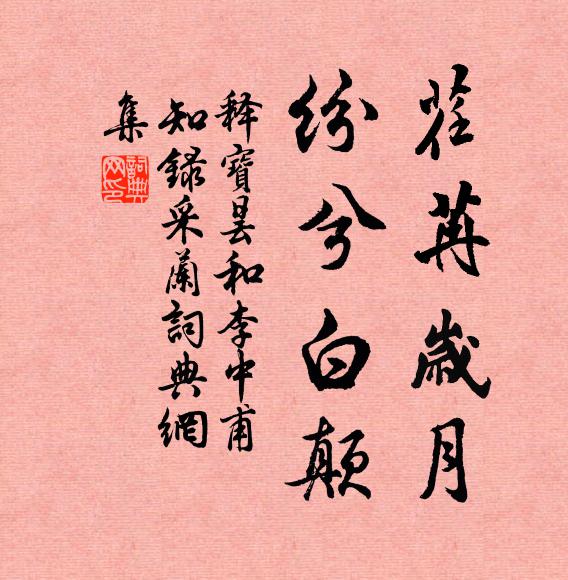 荏苒歲月
紛兮白顛
释寶曇和李中甫
知錄采蘭詞典網
集
詞典
网印